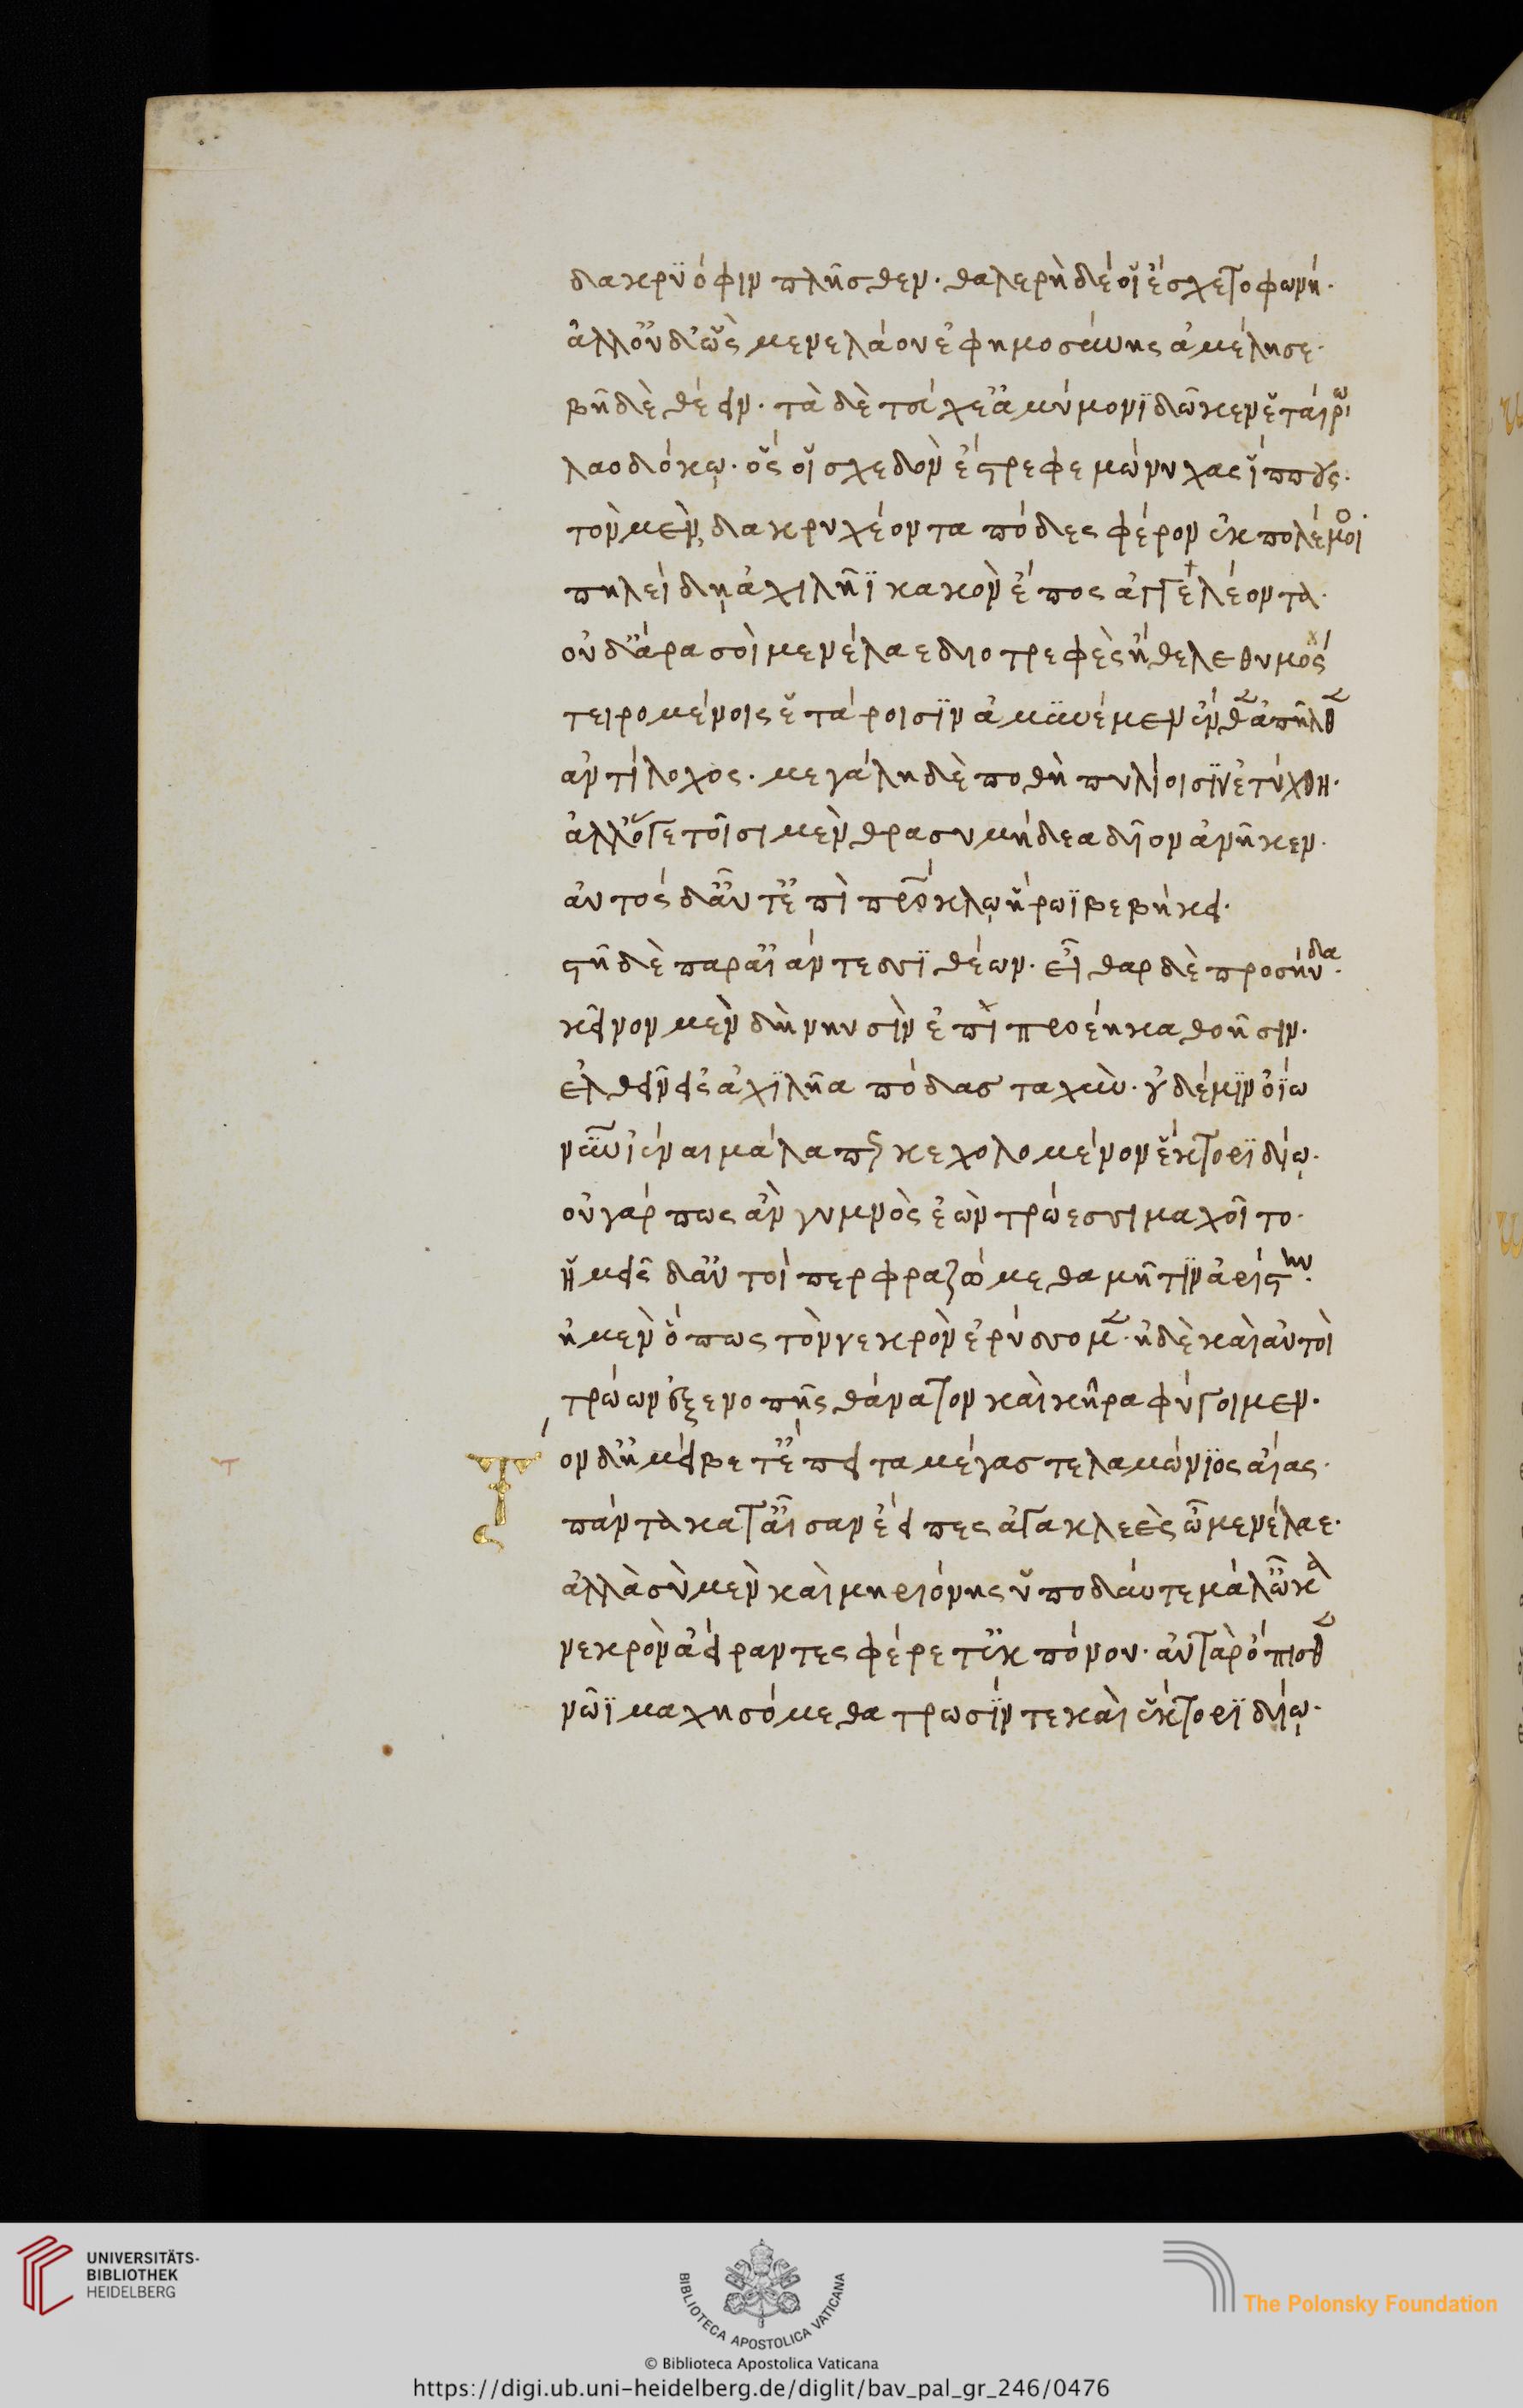 δακρϋόφιν πλῆσθεν· θαλερὴ δέ οἵ ἔσχετο φωνή·
ἀλλ' οὐδ' ὧς μενελάου ἐφημοσύνης ἀμέλησε·
βῆ δὲ θέειν· τὰ δὲ τεύχε' ἀμύμονϊ δῶκεν ἑταίρω
λαοδόκῳ· ὅς οἵ σχεδὸν ἔστρεφε μώνυχας ἵππους·
τὸν μὲν δακρυχέοντα πόδες φέρον ἐκ πολέμοιο·
πηλείδῃ ἀχιλῆϊ κακὸν ἔπος ἀγγελέοντα·
οὐδ' ἄρα σοὶ μενέλαε διοτρεφὲς ἤθελε θυμός
τειρομένοις ἑτάροισϊν ἀμυνέμεν ἔνθεν ἀπῆλθεν
ἀντίλοχος· μεγάλη δὲ ποθὴ πυλίοισϊν ἐτύχθη·
ἀλλ' ὅγε τοῖσι μὲν θρασυμήδεα δῖον ἀνῆκεν·
αὐτός δ' αὖτ' ἐπὶ πατρόκλῳ ἥρωϊ βεβήκει·
στῆ δὲ παρ' αἰάντεσσϊ θέων· εἶθαρ δὲ προσηύδα·
κεῖνον μὲν δὴ νηυσὶν ἐπὶ προέηκα θοῆσιν·
ἐλθεῖν εἰς ἀχϊλῆα πόδας ταχὺν· οὐδέ μϊν ὀΐω
νῦν ἰέναι μάλα περ κεχολωμένον ἕκτορϊ δίῳ·
οὐ γάρ πως ἂν γυμνὸς ἐὼν τρώεσσι μαχοῖτο·
ἡμεῖς δ' αὐτοί περ φραζώμεθα μῆτϊν ἀρίστην·
ἠμὲν ὅπως τὸν νεκρὸν ἐρύσσομεν· ἠδὲ καὶ αὐτοὶ
τρώων ἐξ ἐνοπῆς θάνατον καὶ κῆρα φύγοιμεν·
Τὸν δ' ἠμείβετ' ἔπειτα μέγας τελαμώνϊος αἴας·
πάντα κατ' αἶσαν ἔειπες ἀγακλεὲς ὦ μενέλαε·
ἀλλὰ σὺ μὲν καὶ μηριόνης ὑποδύντε μάλ' ὦκα
νεκρὸν ἀείραντες φέρετ' ἐκ πόνου· αὐτὰρ ὄπισθεν
νῶϊ μαχησόμεθα τρωσΐν τε καὶ ἕκτορϊ δίῳ·
τ
UNIVERSITÄTS-
BIBLIOTHEK
HEIDELBERG
BIBLIOTECA APOSTOLICA VATICANA
The Polonsky Foundation
© Biblioteca Apostolica Vaticana
https://digi.ub.uni-heidelberg.de/diglit/bav_pal_gr_246/0476